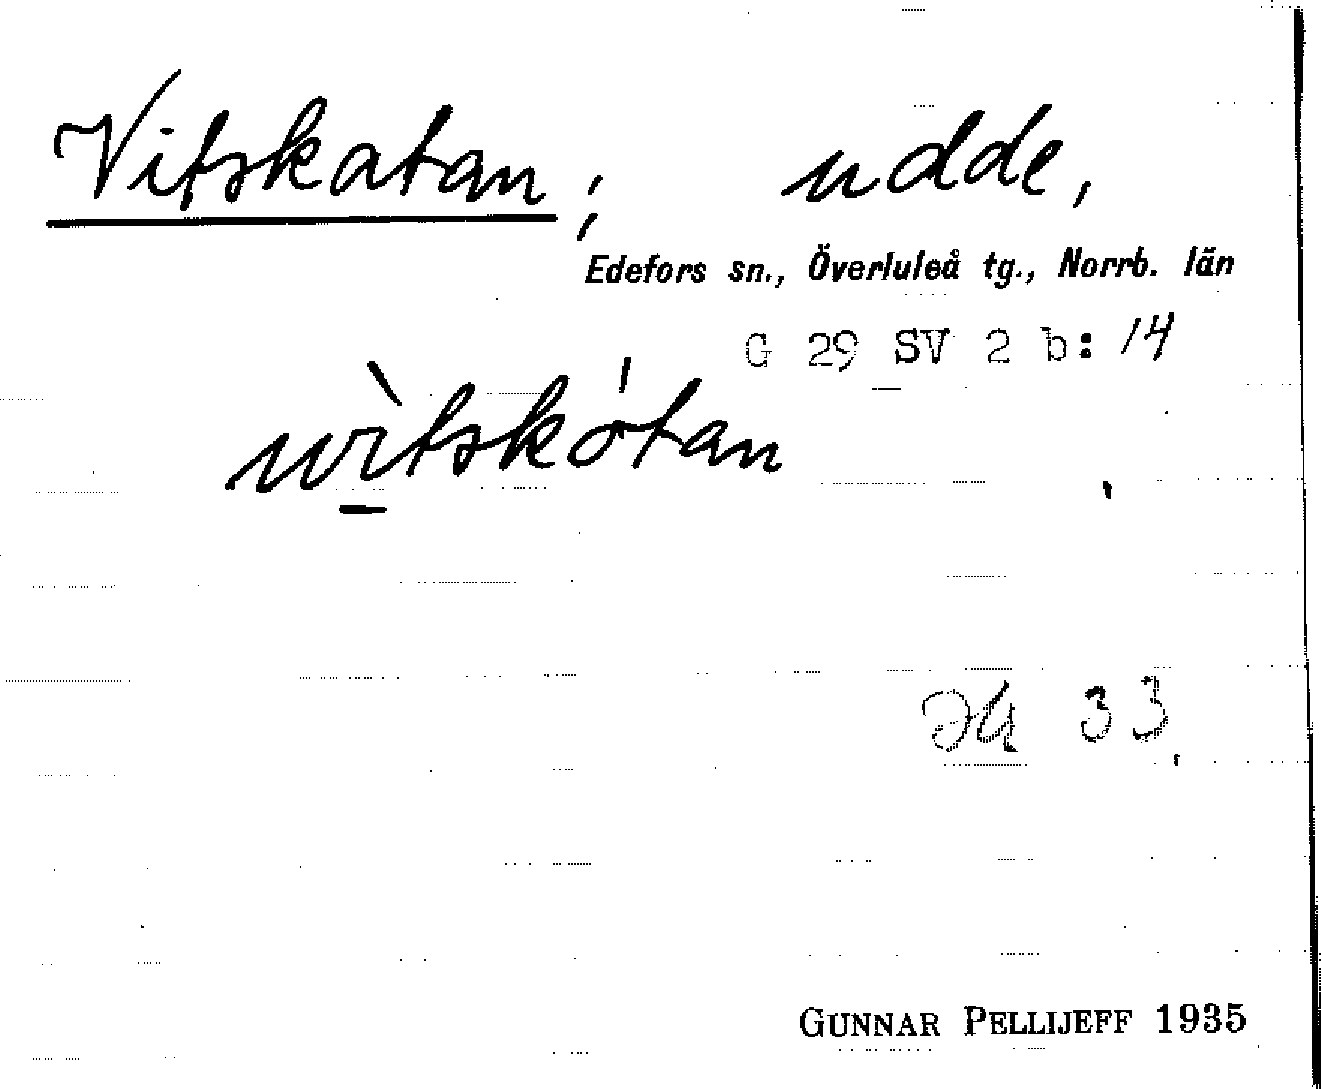 Vitskatan; udde,
Edefors sn., Överluleå tg., Norrb. län
G 29 SV 2 b: 14
wìtskótan
33
GUNNAR PELLIJEFF 1935